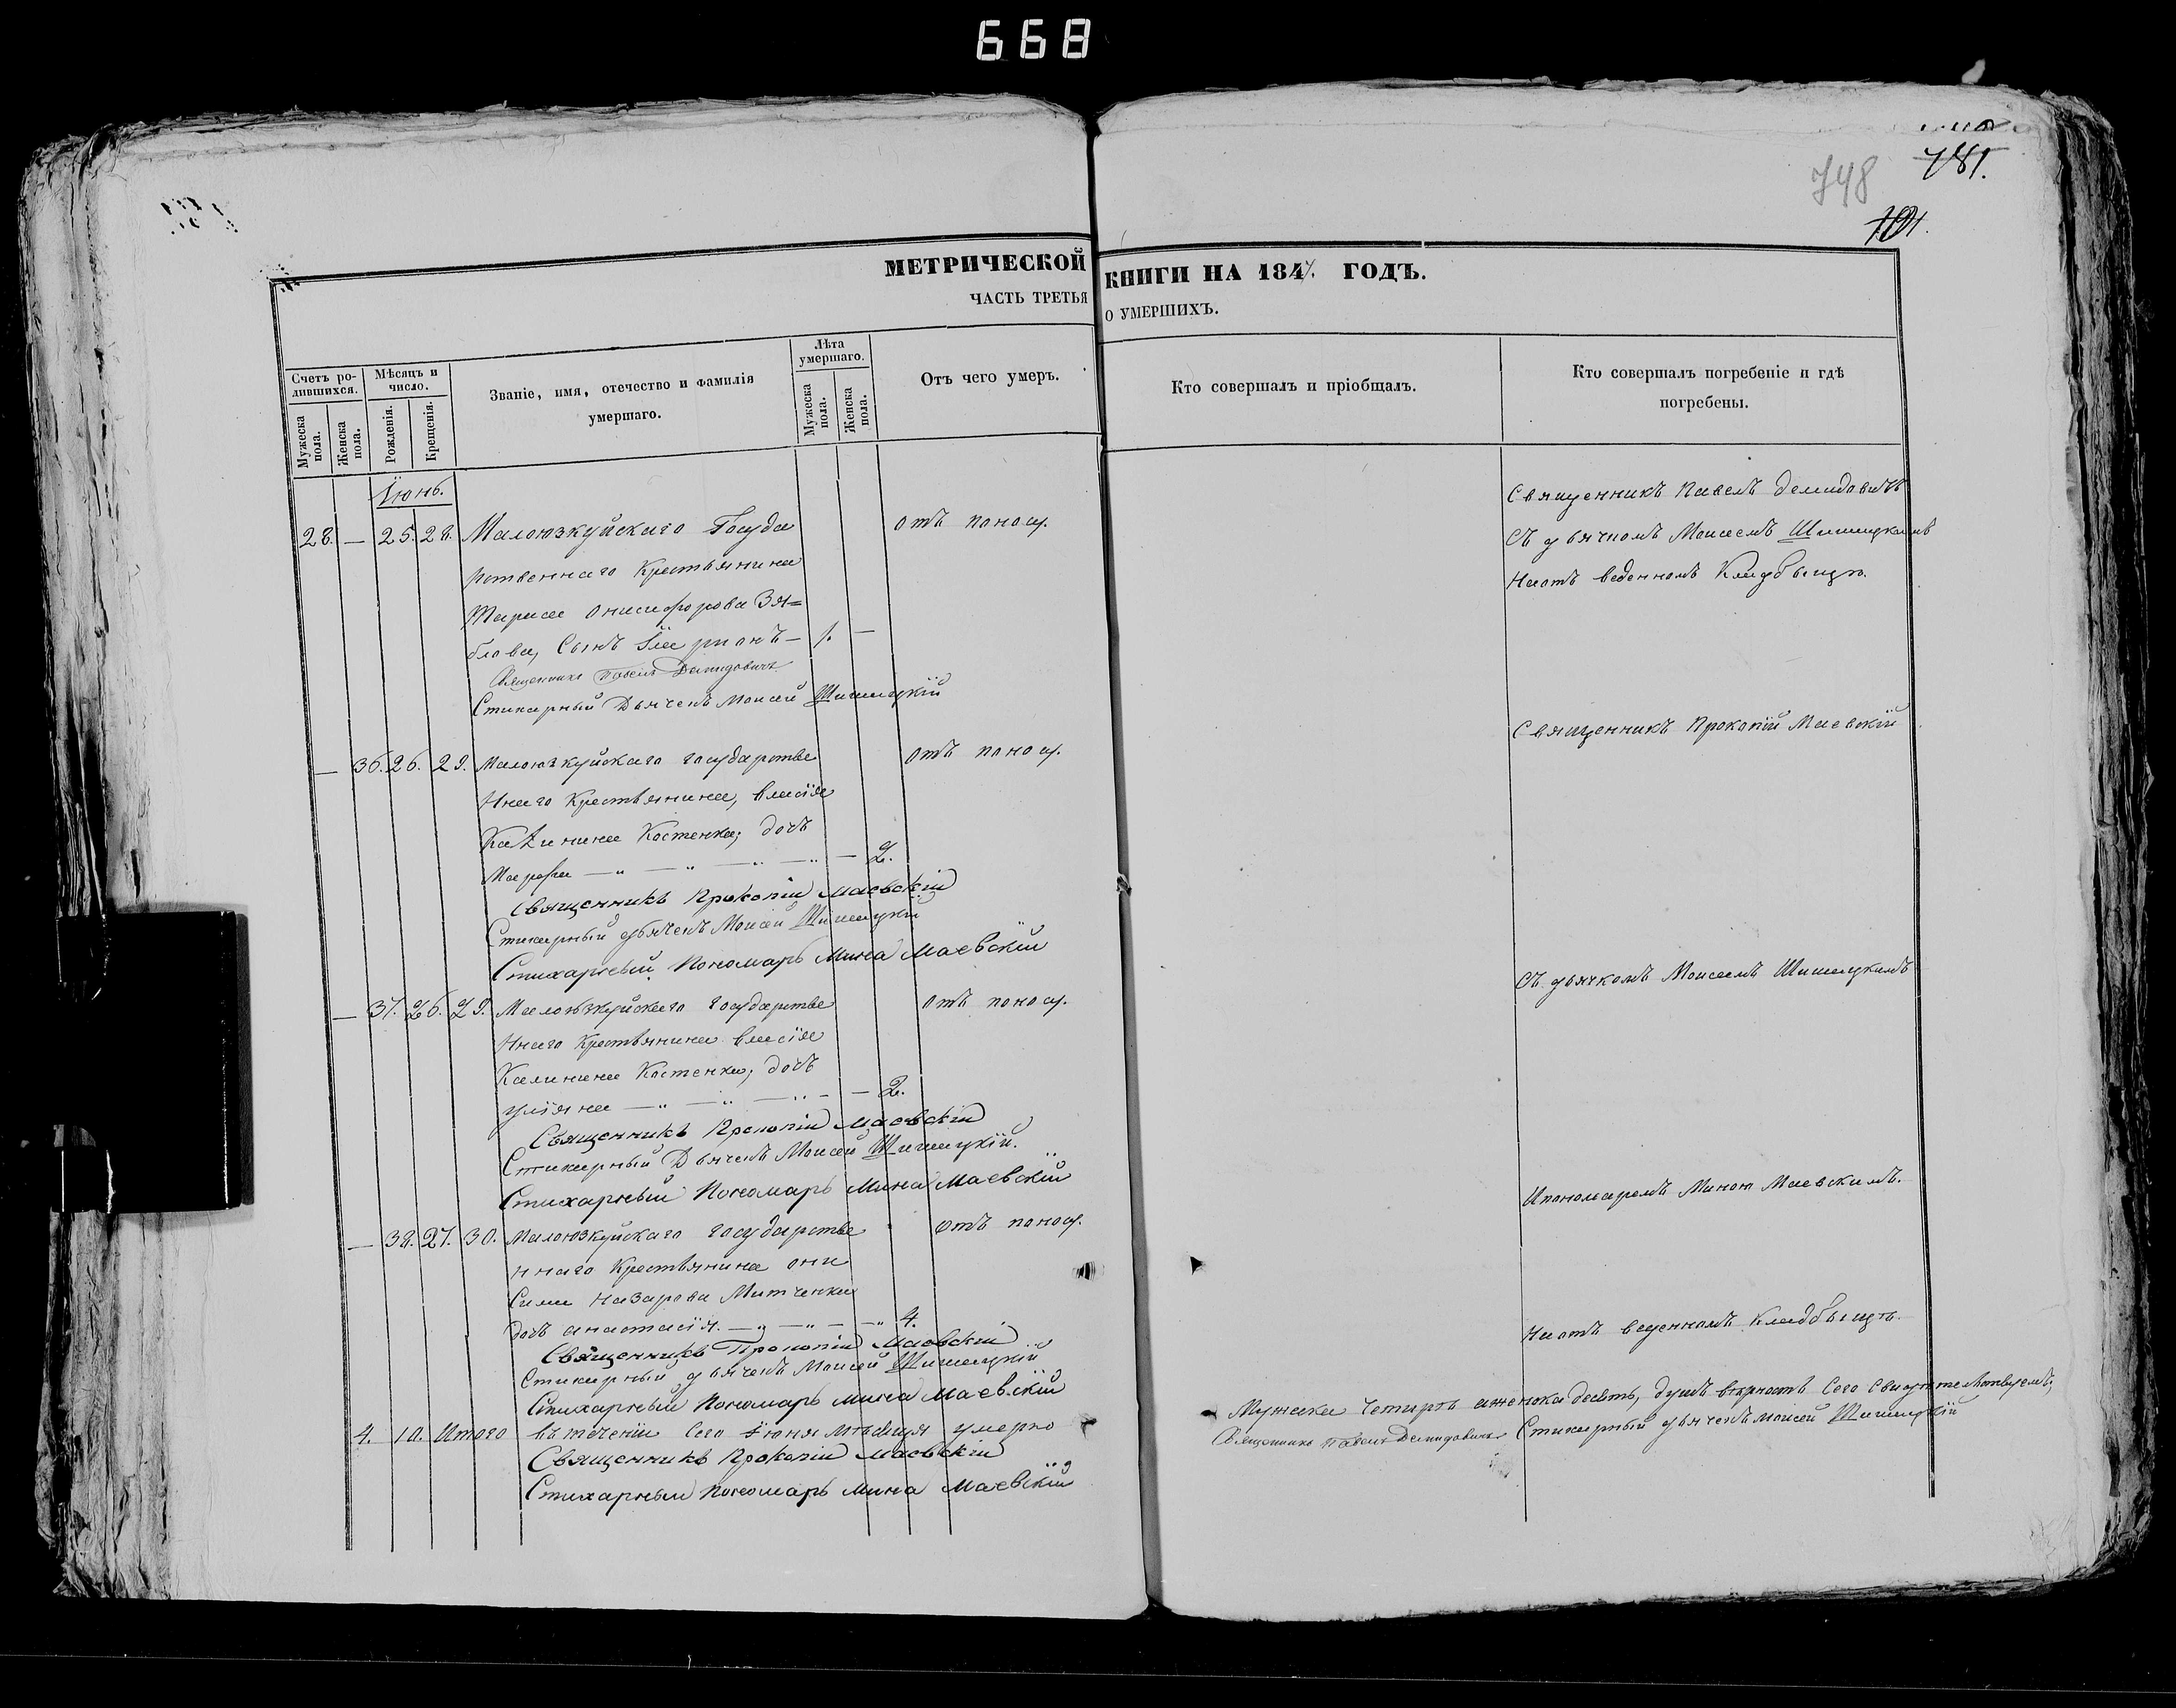 668
781.
748
101.
МЕТРИЧЕСКОЙ КНИГИ НА 1847. ГОДЪ.
ЧАСТЬ ТРЕТЬЯ О УМЕРШИХЪ.
Счетъ ро-
дившихся.
Мужеска пола.
Женска пола.
Мѣсяцъ и
число.
Рожденія.
Крещенія.
Званіе, имя, отечество и фамилія
умершаго.
Лѣта
умершаго.
Мужеска пола.
Женска пола.
Отъ чего умеръ.
Кто совершалъ и пріобщалъ.
Кто совершалъ погребеніе и гдѣ
погребены.
Іюнь.
28. — 25. 28. Малоюзкуйскаго Госуда
рственнаго Крестьянина
Онисифорова Зя=
блова, Сынъ — 1. —
отъ поносу.
Священникъ Павелъ Демидовичъ
Стихарный Дьячекъ Моисей Шишацкій
Священникъ Павелъ Демидовичъ
Съ дьячкомъ Моисеемъ Шишацкимъ
На отъ веденномъ Кладбыщѣ.
— 36. 26. 29. Малоюзкуйскаго государстве
ннаго Крестьянина, власія
Калинина Костенка; дочь
Марфа — „ — „ — „ — „ — 2.
отъ поносу.
Священникъ Прокопій Маевскій
Стихарный дьячекъ Моисей Шишацкій
Стихарный Пономарь Мина Маевскій
Священникъ Прокопій Маевскій
— 37. 26. 29. Малоюзкуйскаго государстве
ннаго Крестьянина власія
Калинина Костенка; дочь
уліяна — „ — „ — „ — — 2.
отъ поносу.
Священникъ Прокопій Маевскій
Стихарный Дьячекъ Моисей Шишацкій.
Стихарный Пономарь Мина Маевскій
Съ дьячкомъ Моисеемъ Шишацкимъ
— 38. 27. 30. Малоюзкуйскаго государстве
ннаго Крестьянина они
Сима Назарова Митченка
дочь анастасія. — „ — „ — — „ 4.
отъ поносу.
Священникъ Прокопій Маевскій
Стихарный дьячекъ Моисей Шишацкій
Стихарный Пономарь Мина Маевскій
И пономаремъ Миною Маевскимъ.
На отъ веденномъ Кладбыщѣ.
4. 10. Итого въ теченіи Сего Іюня мѣсяца умерло
Мужска четыре а женска десять, душъ вѣрность Сего Свидѣтелствуемъ;
Священникъ Прокопій Маевскій
Стихарный Пономарь Мина Маевскій
Священникъ Павелъ Демидовичъ Стихарный дьячекъ Моисей Шишацкій